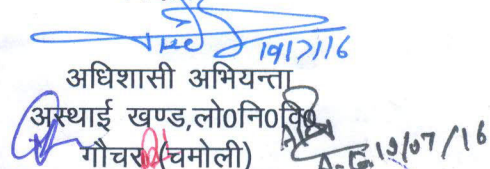 19/7/16
अधिशासी अभियन्ता
अस्थाई खण्ड,लो0नि0वि0
गौचर (चमोली)
A.E. 19/07/16